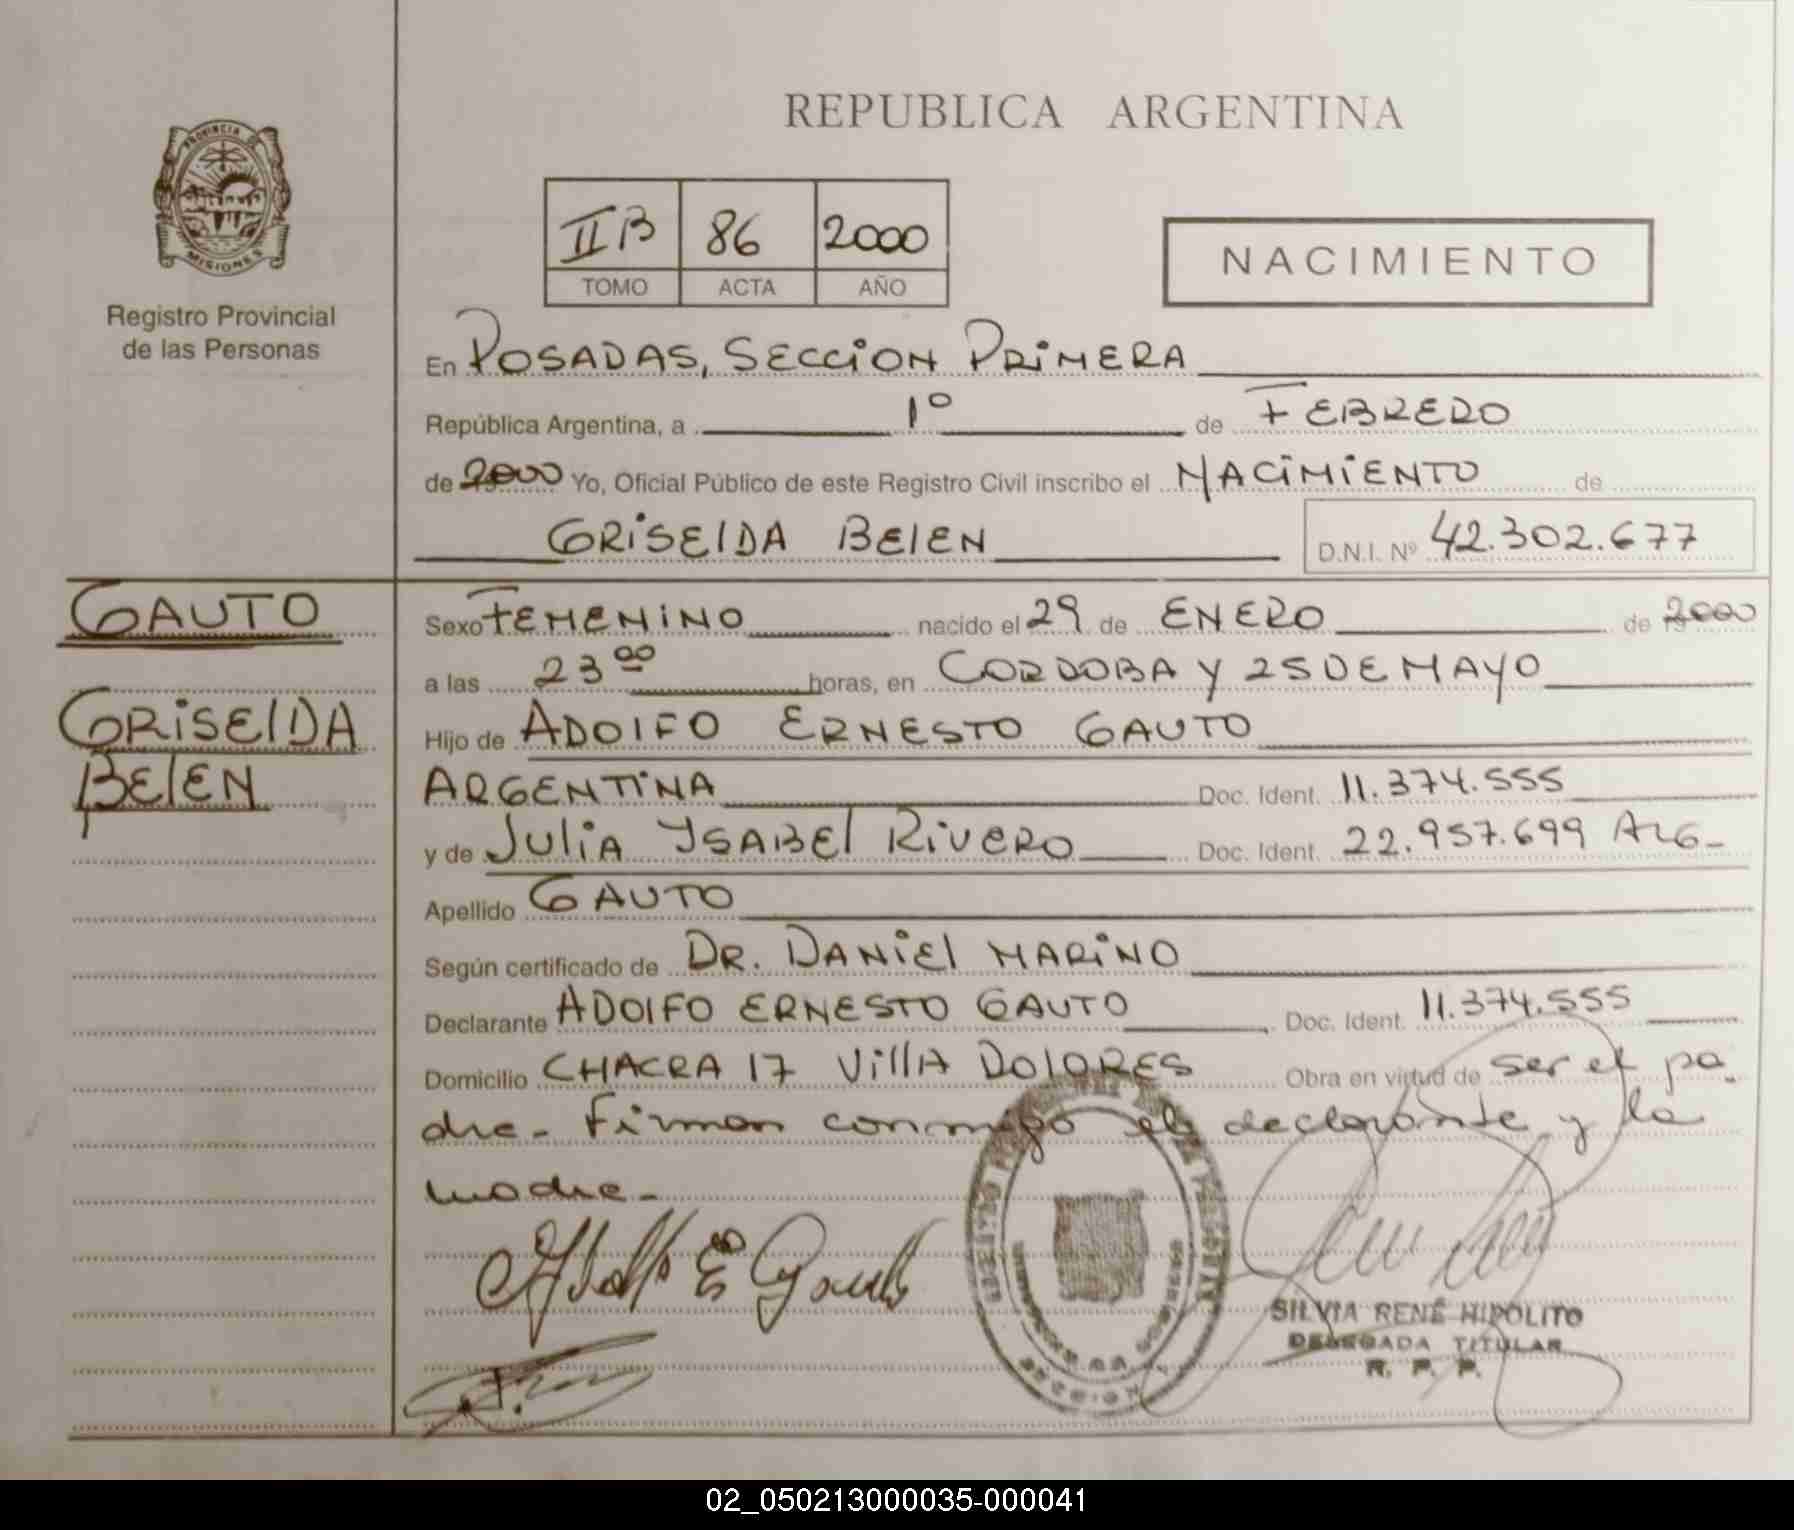 REPUBLICA ARGENTINA
PROVINCIA DE
MISIONES
Registro Provincial
de las Personas
II B 86 2000
TOMO ACTA AÑO
NACIMIENTO
En POSADAS, SECCION PRIMERA
República Argentina, a 1º de FEBRERO
de 2000 Yo, Oficial Público de este Registro Civil inscribo el NACIMIENTO de
GRISELDA BELEN D.N.I. Nº 42.302.677
GAUTO
GRISELDA
BELEN
Sexo FEMENINO nacido el 29 de ENERO de 2000
a las 23 00 horas, en CORDOBA Y 25 DE MAYO
Hijo de ADOLFO ERNESTO GAUTO
ARGENTINA Doc. Ident. 11.374.555
y de JULIA YSABEL RIVERO Doc. Ident. 22.957.699 ARG-
Apellido GAUTO
Según certificado de DR. DANIEL MARINO
Declarante ADOLFO ERNESTO GAUTO Doc. Ident. 11.374.555
Domicilio CHACRA 17 VILLA DOLORES Obra en virtud de ser el pa
dre- Firman conmigo el declarante y la
madre-
Adolfo E Gauto
SILVIA RENÉ HIPOLITO
DELEGADA TITULAR
R. P. P.
02_050213000035-000041